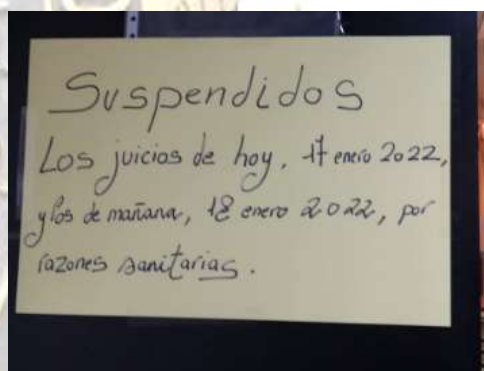 Suspendidos
Los juicios de hoy, 17 enero 2022,
y los de mañana, 18 enero 2022, por
razones sanitarias.